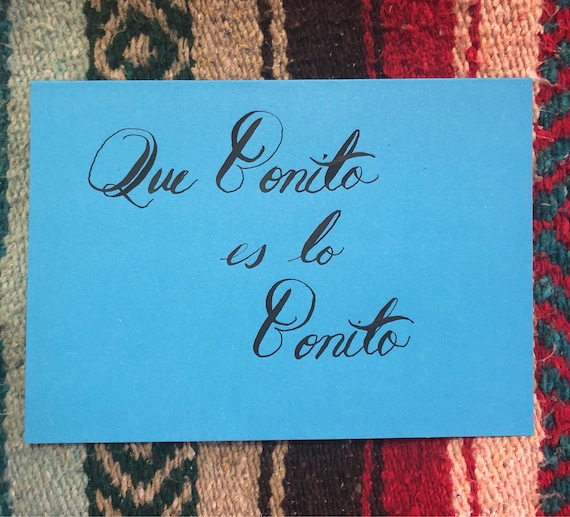 Que Bonito
es lo
Bonito